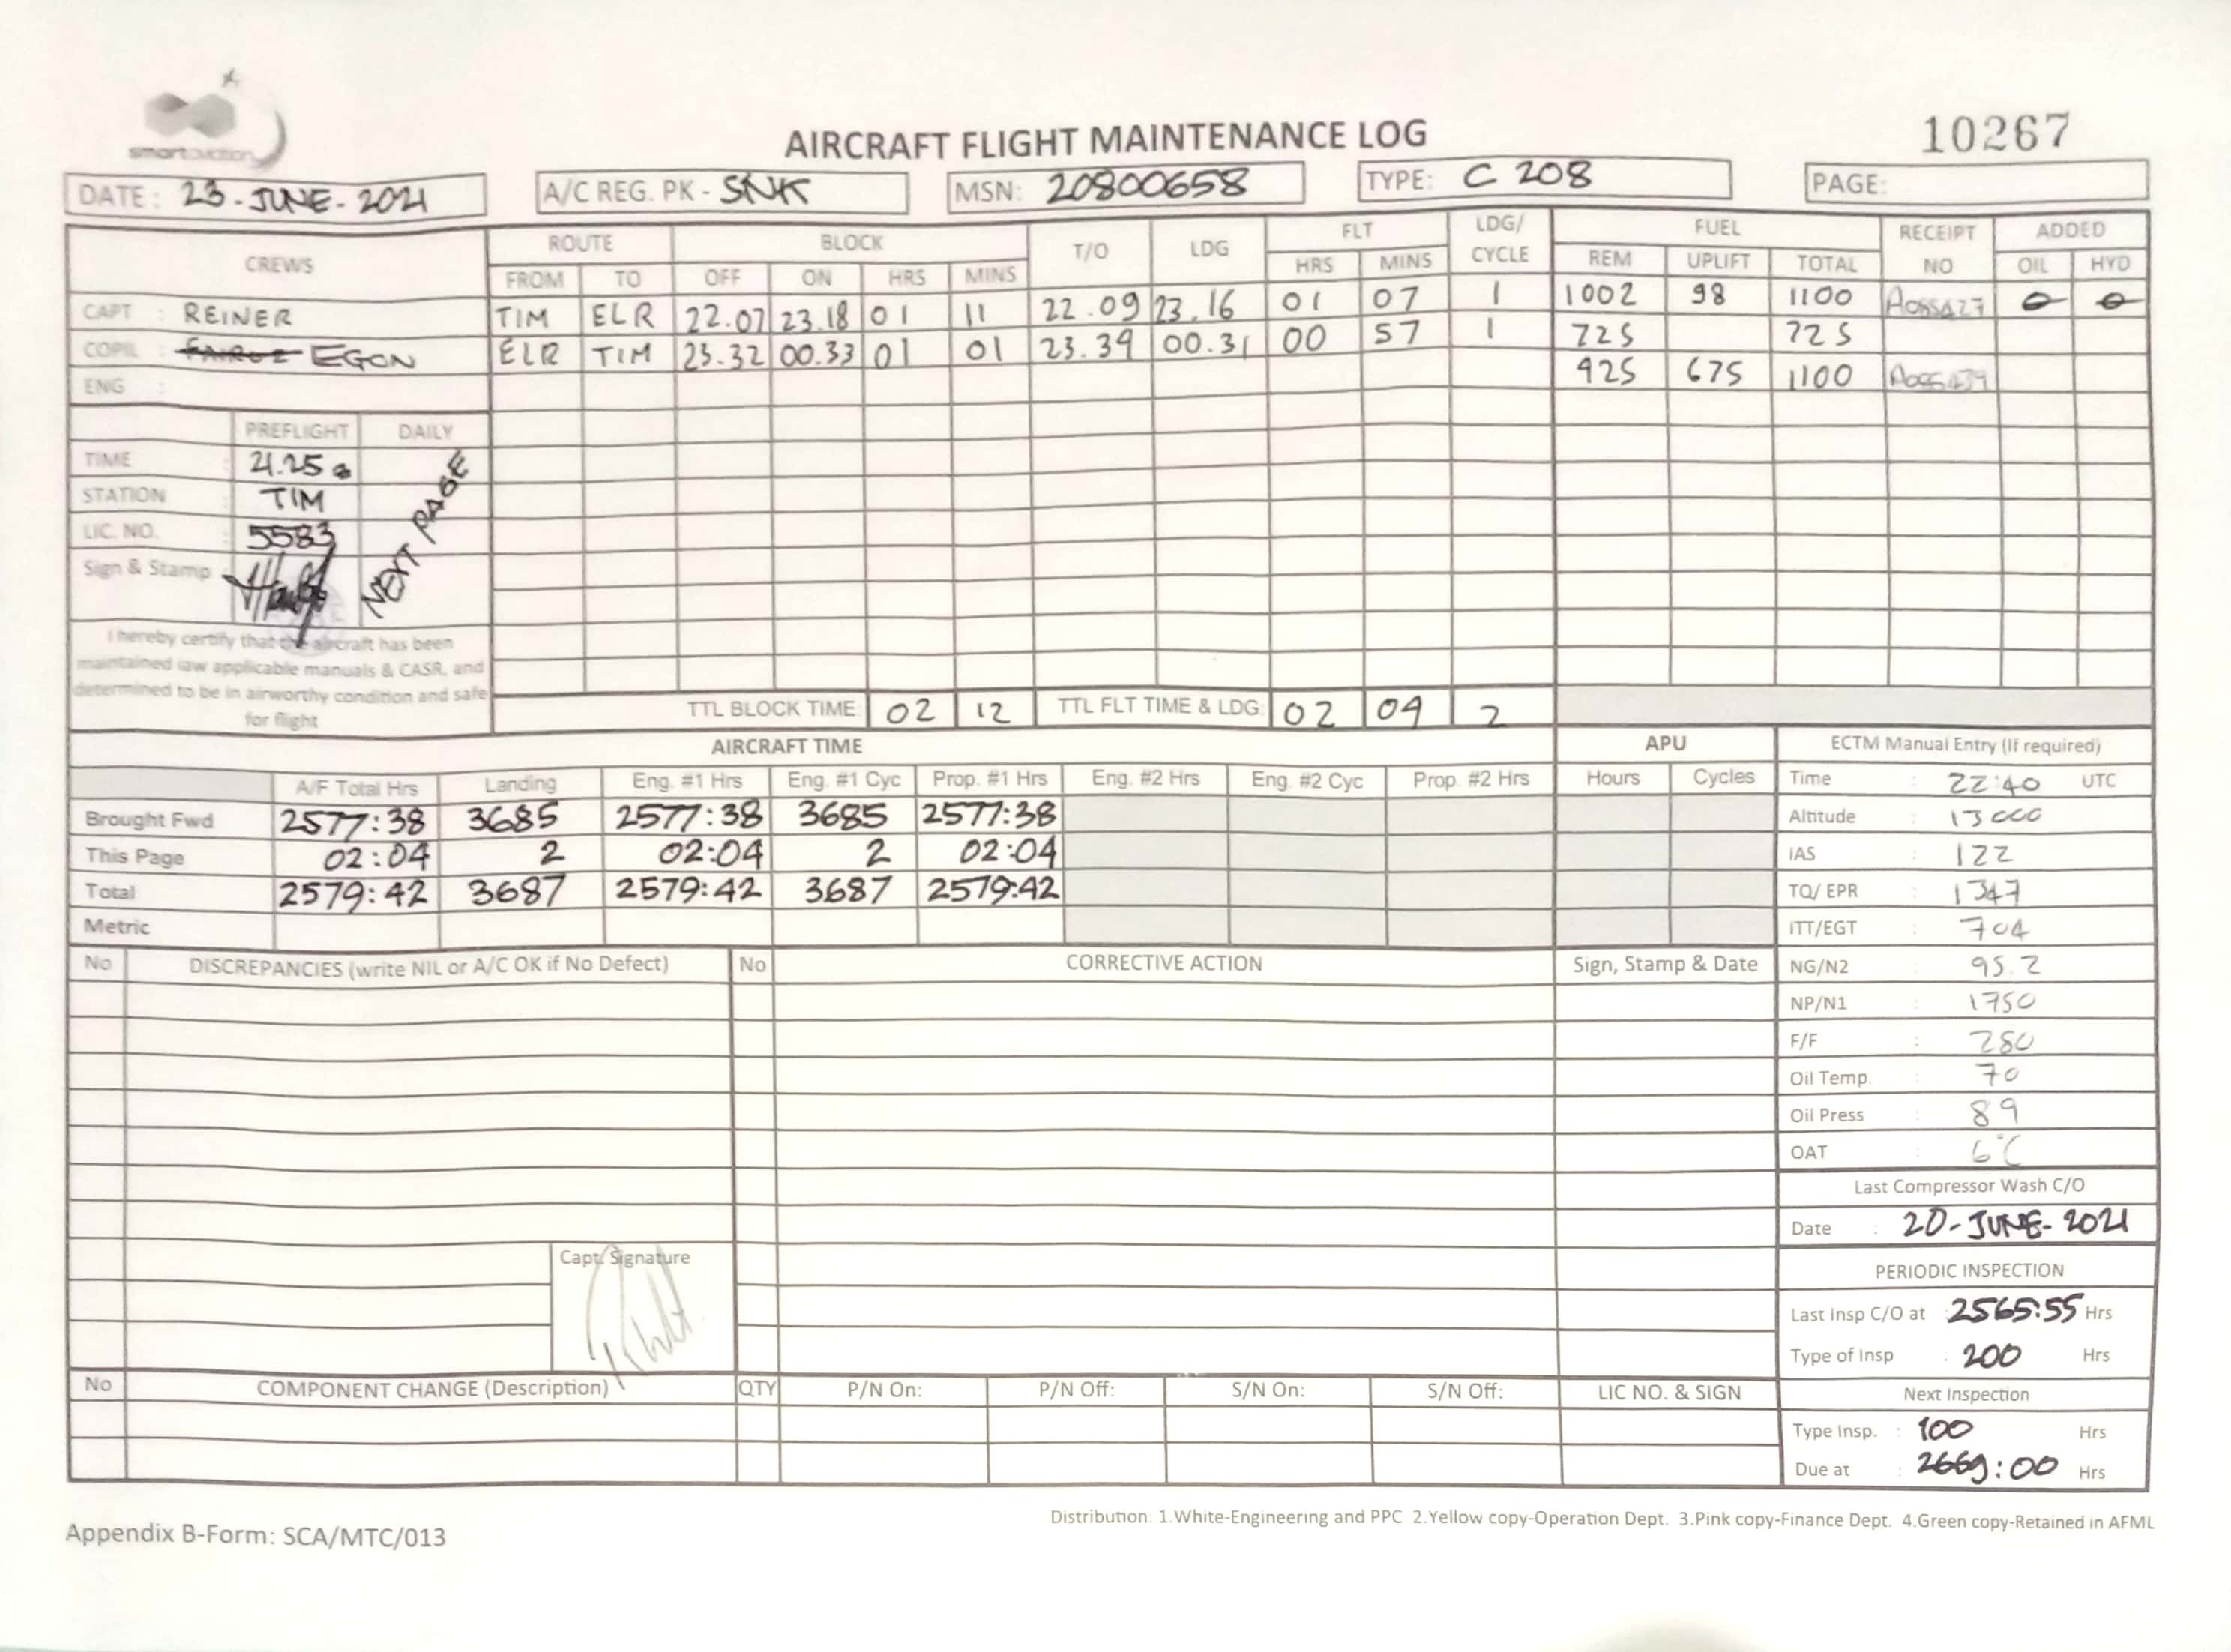 smartaviation
AIRCRAFT FLIGHT MAINTENANCE LOG
10267
DATE : 23-JUNE-2021
A/C REG. PK - SNK
MSN: 20800658
TYPE: C 208
PAGE:
CREWS ROUTE BLOCK T/O LDG FLT LDG/ CYCLE FUEL RECEIPT NO ADDED
FROM TO OFF ON HRS MINS HRS MINS REM UPLIFT TOTAL OIL HYD
CAPT : REINER TIM ELR 22.07 23.18 01 11 22.09 23.16 01 07 1 1002 98 1100 0 0
COPIL : FAIRUZ EGON ELR TIM 23.32 00.33 01 01 23.34 00.31 00 57 1 725 725
ENG : 925 675 1100
PREFLIGHT DAILY
TIME : 21.25
STATION : TIM
LIC. NO. : 5583
Sign & Stamp :
NEXT PAGE
I hereby certify that the aircraft has been
maintained iaw applicable manuals & CASR, and
determined to be in airworthy condition and safe
for flight
TTL BLOCK TIME: 02 12 TTL FLT TIME & LDG: 02 04 2
AIRCRAFT TIME APU ECTM Manual Entry (If required)
A/F Total Hrs Landing Eng. #1 Hrs Eng. #1 Cyc Prop. #1 Hrs Eng. #2 Hrs Eng. #2 Cyc Prop. #2 Hrs Hours Cycles Time : 22:40 UTC
Brought Fwd 2577:38 3685 2577:38 3685 2577:38 Altitude : 13000
This Page 02:04 2 02:04 2 02:04 IAS : 122
Total 2579:42 3687 2579:42 3687 2579:42 TQ/ EPR : 1347
Metric ITT/EGT : 704
No DISCREPANCIES (write NIL or A/C OK if No Defect) No CORRECTIVE ACTION Sign, Stamp & Date NG/N2 : 95.2
NP/N1 : 1750
F/F : 280
Oil Temp. : 70
Oil Press : 89
OAT : 6°C
Last Compressor Wash C/O
Date : 20-JUNE-2021
Capt. Signature
PERIODIC INSPECTION
Last Insp C/O at : 2565:55 Hrs
Type of Insp : 200 Hrs
No COMPONENT CHANGE (Description) QTY P/N On: P/N Off: S/N On: S/N Off: LIC NO. & SIGN Next Inspection
Type Insp. : 100 Hrs
Due at : 2669:00 Hrs
Distribution: 1.White-Engineering and PPC 2.Yellow copy-Operation Dept. 3.Pink copy-Finance Dept. 4.Green copy-Retained in AFML
Appendix B-Form: SCA/MTC/013